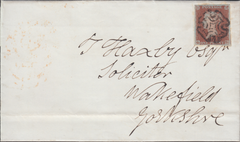 T Haxby Esqr
Solicitor
Wakefield
Yorkshire